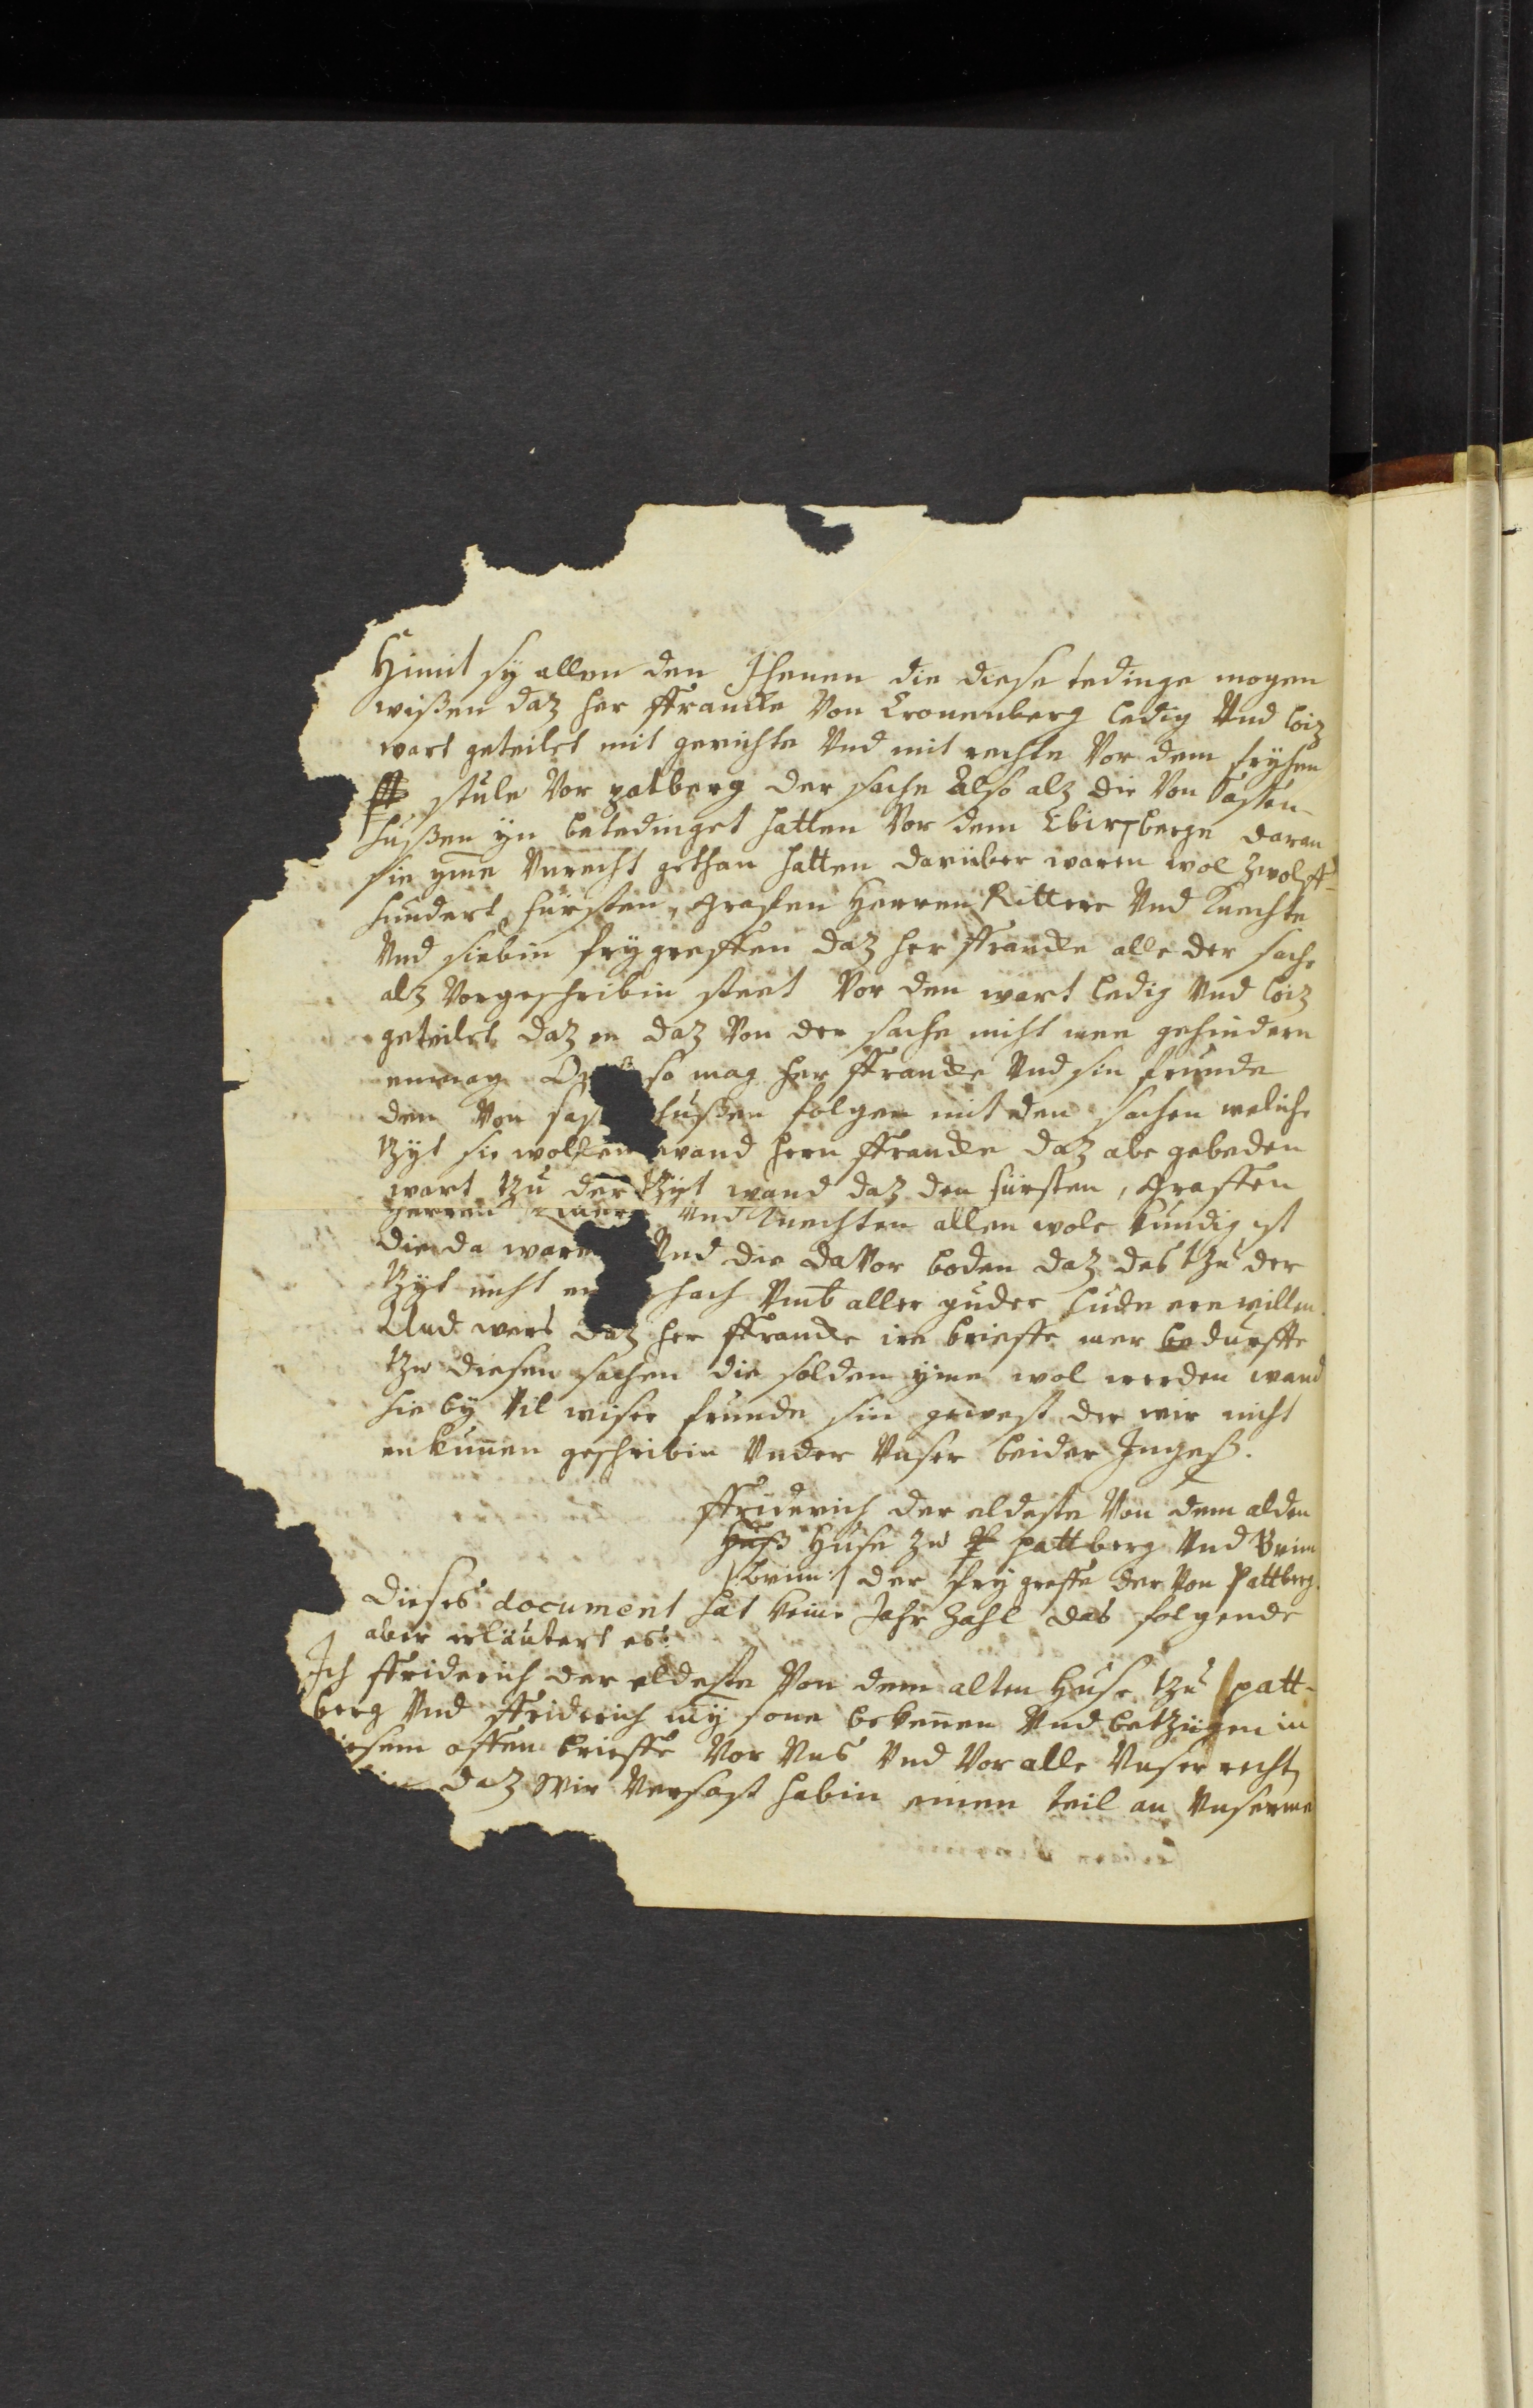 Himit sy allen den Jhenen die diese tedinge mogen
wißen daz her ffrancke Von Cronenberg ledig Vnd loiz
wart geteilet mit gerichte Vnd mit rechte Vor dem fryhen
stule Vor patberg der sache Also alz die Von Sassen-
hußen yn betedinget hatten Vor dem Ebirsberge daran
sie yme Vnrecht gethan hatten darüber waren wol zwolff-
hundert fürsten, Grafen Herren Rittere Vnd Knechte
Vnd siebin frygreffen daz her ffrancke alle der sache
alz Vorgeschribin steet Vor den wart ledig Vnd loiz
geteilet daz en daz Von der sache niht mee gehindern
enmag so mag her ffrancke Vnd sin frunde
den Von sas hußen folgen mit den sachen weliche
tzyt sie wollen wand hern ffrancke daz abe gebeden
wart tzu der tzyt wand daz den fürsten, Graffen
Herren Vnd Knechten allen wole kundig ist
die da ware Vnd die da Vor boden daz des tzu der
tzyt niht en schach Vmb aller guder lude ere willen.
Vnd wers daz her ffrancke ire brieffe mer bedurffte
tzu diesen sachen die solden yme wol werden wand
sie by Vil wiser frunde sin gewest der wir nicht
en kunnen geschribin Vnder Vnser beider Ingeß.
ffriderich der eldeste Von dem alden
Huß Huse zu P pattberg Vnd
der fry greffe der Von Pattberg.
Dieses document hat keine Jahr Zahl das folgende
aber erläutert es.
Ich ffriderich der eldeste Von dem alten Huse tzu patt-
berg Vnd ffriderich my sone bekennen Vnd betzügen in
diesem offen brieffe Vor Vns Vnd Vor alle Vnser recht
daz Wir Versast habin einen teil an Vnserme